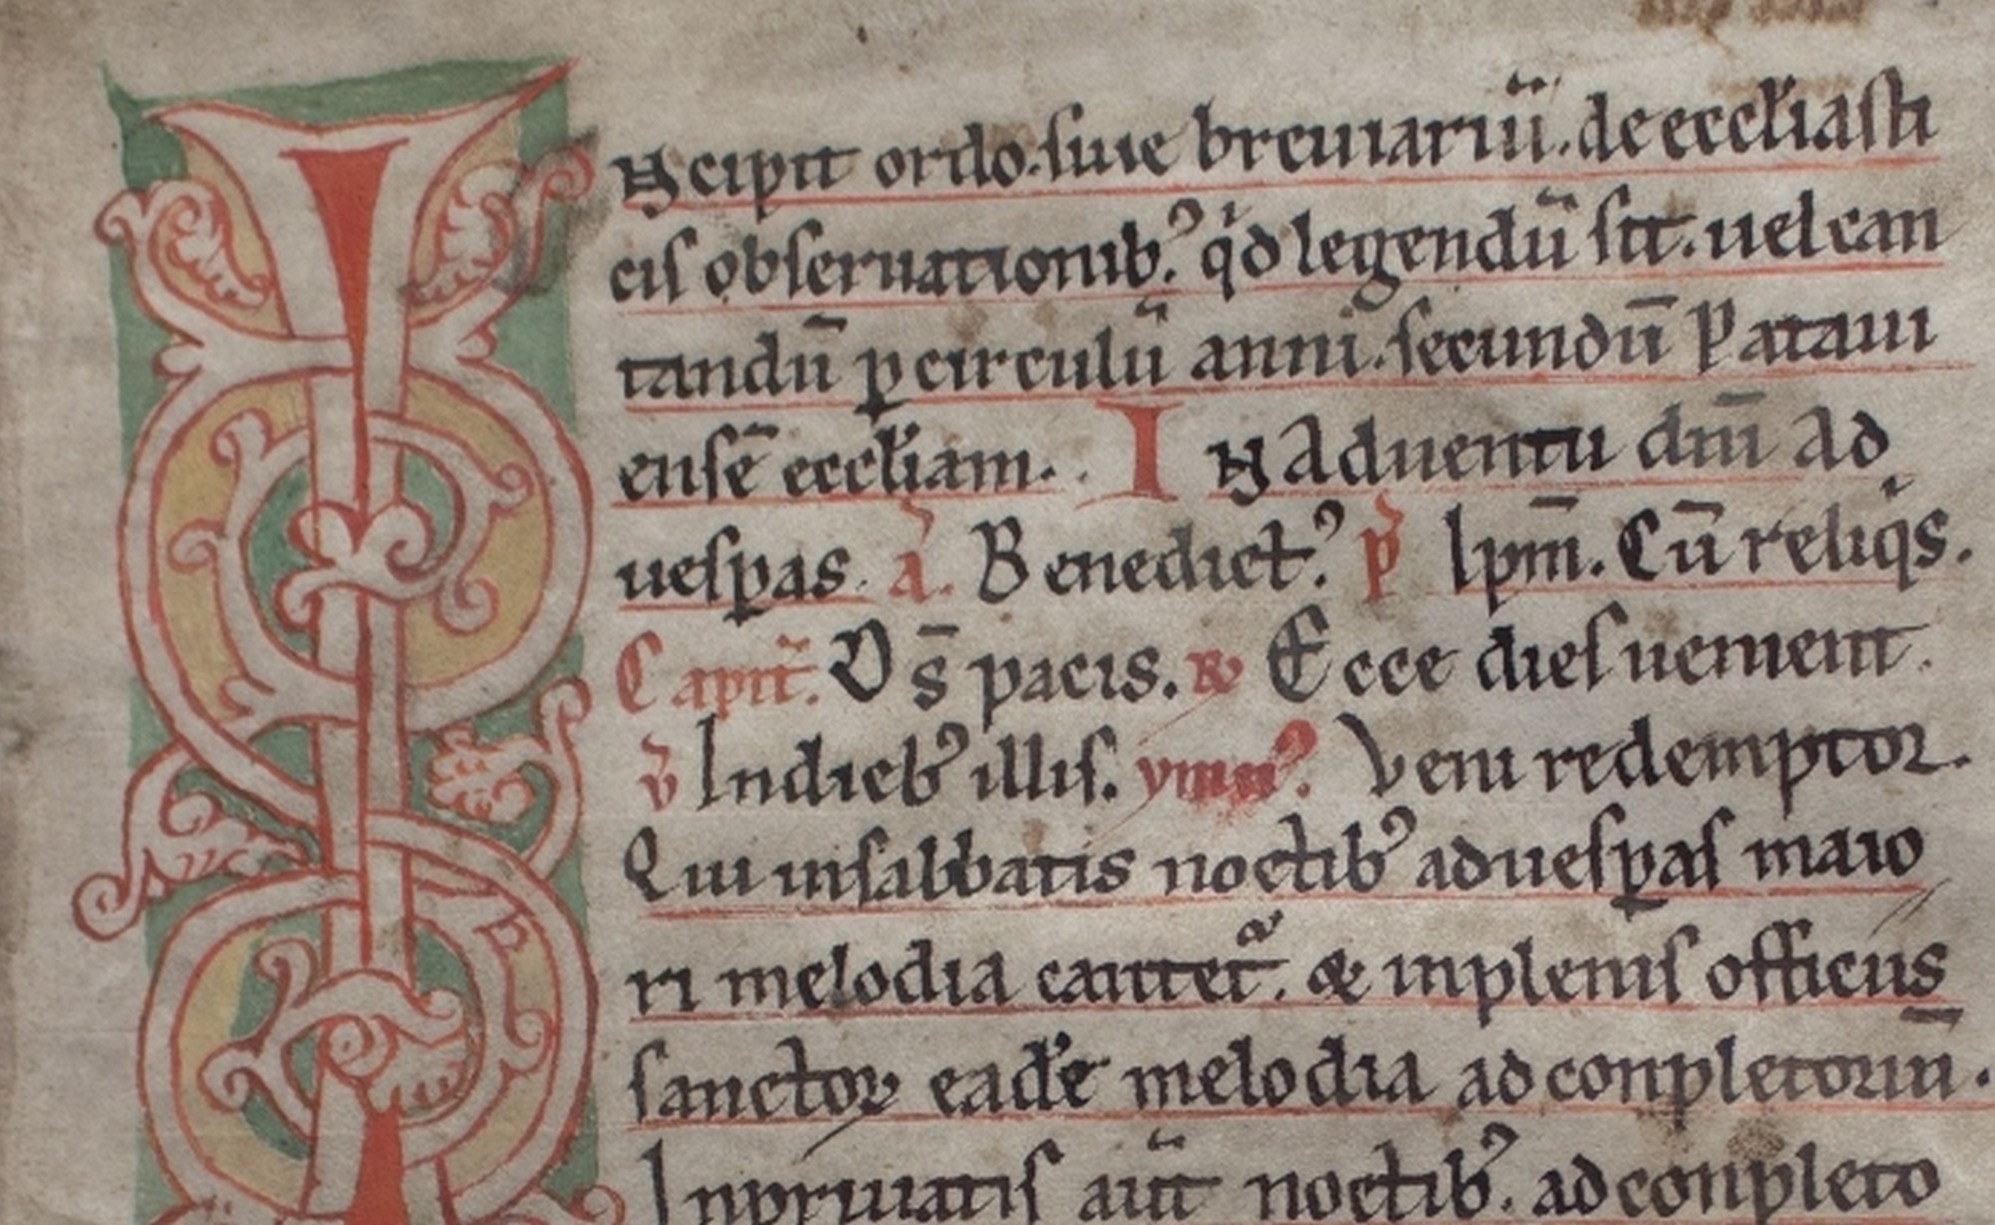 INcipit ordo. siue breuiariũ. de eccłiasti
cis obseruationib᾽. qͥd legendũ sit. uel can
tandũ ꝑ circulũ anni. secundũ Pataui
ensẽ eccłiam. IN Aduentu dnĩ Ad
uesꝑas. aᷓ. Benedict᾽. p᷒ Ipm̄. Cũ reliqͥs.
Capit̃. D̄s pacis. ꝶ Ecce dies uenient.
v̓ In dieb᾽ illis. ymn᾽. Veni redemptor.
Qui in sabbatis noctib᾽ ad uesꝑas maio
ri melodia cantet᷑. & in plenis officiis
sanctoꝝ eadẽ melodia ad conpletoriũ.
In priuatis aut̃ noctib᾽. ad conpleto